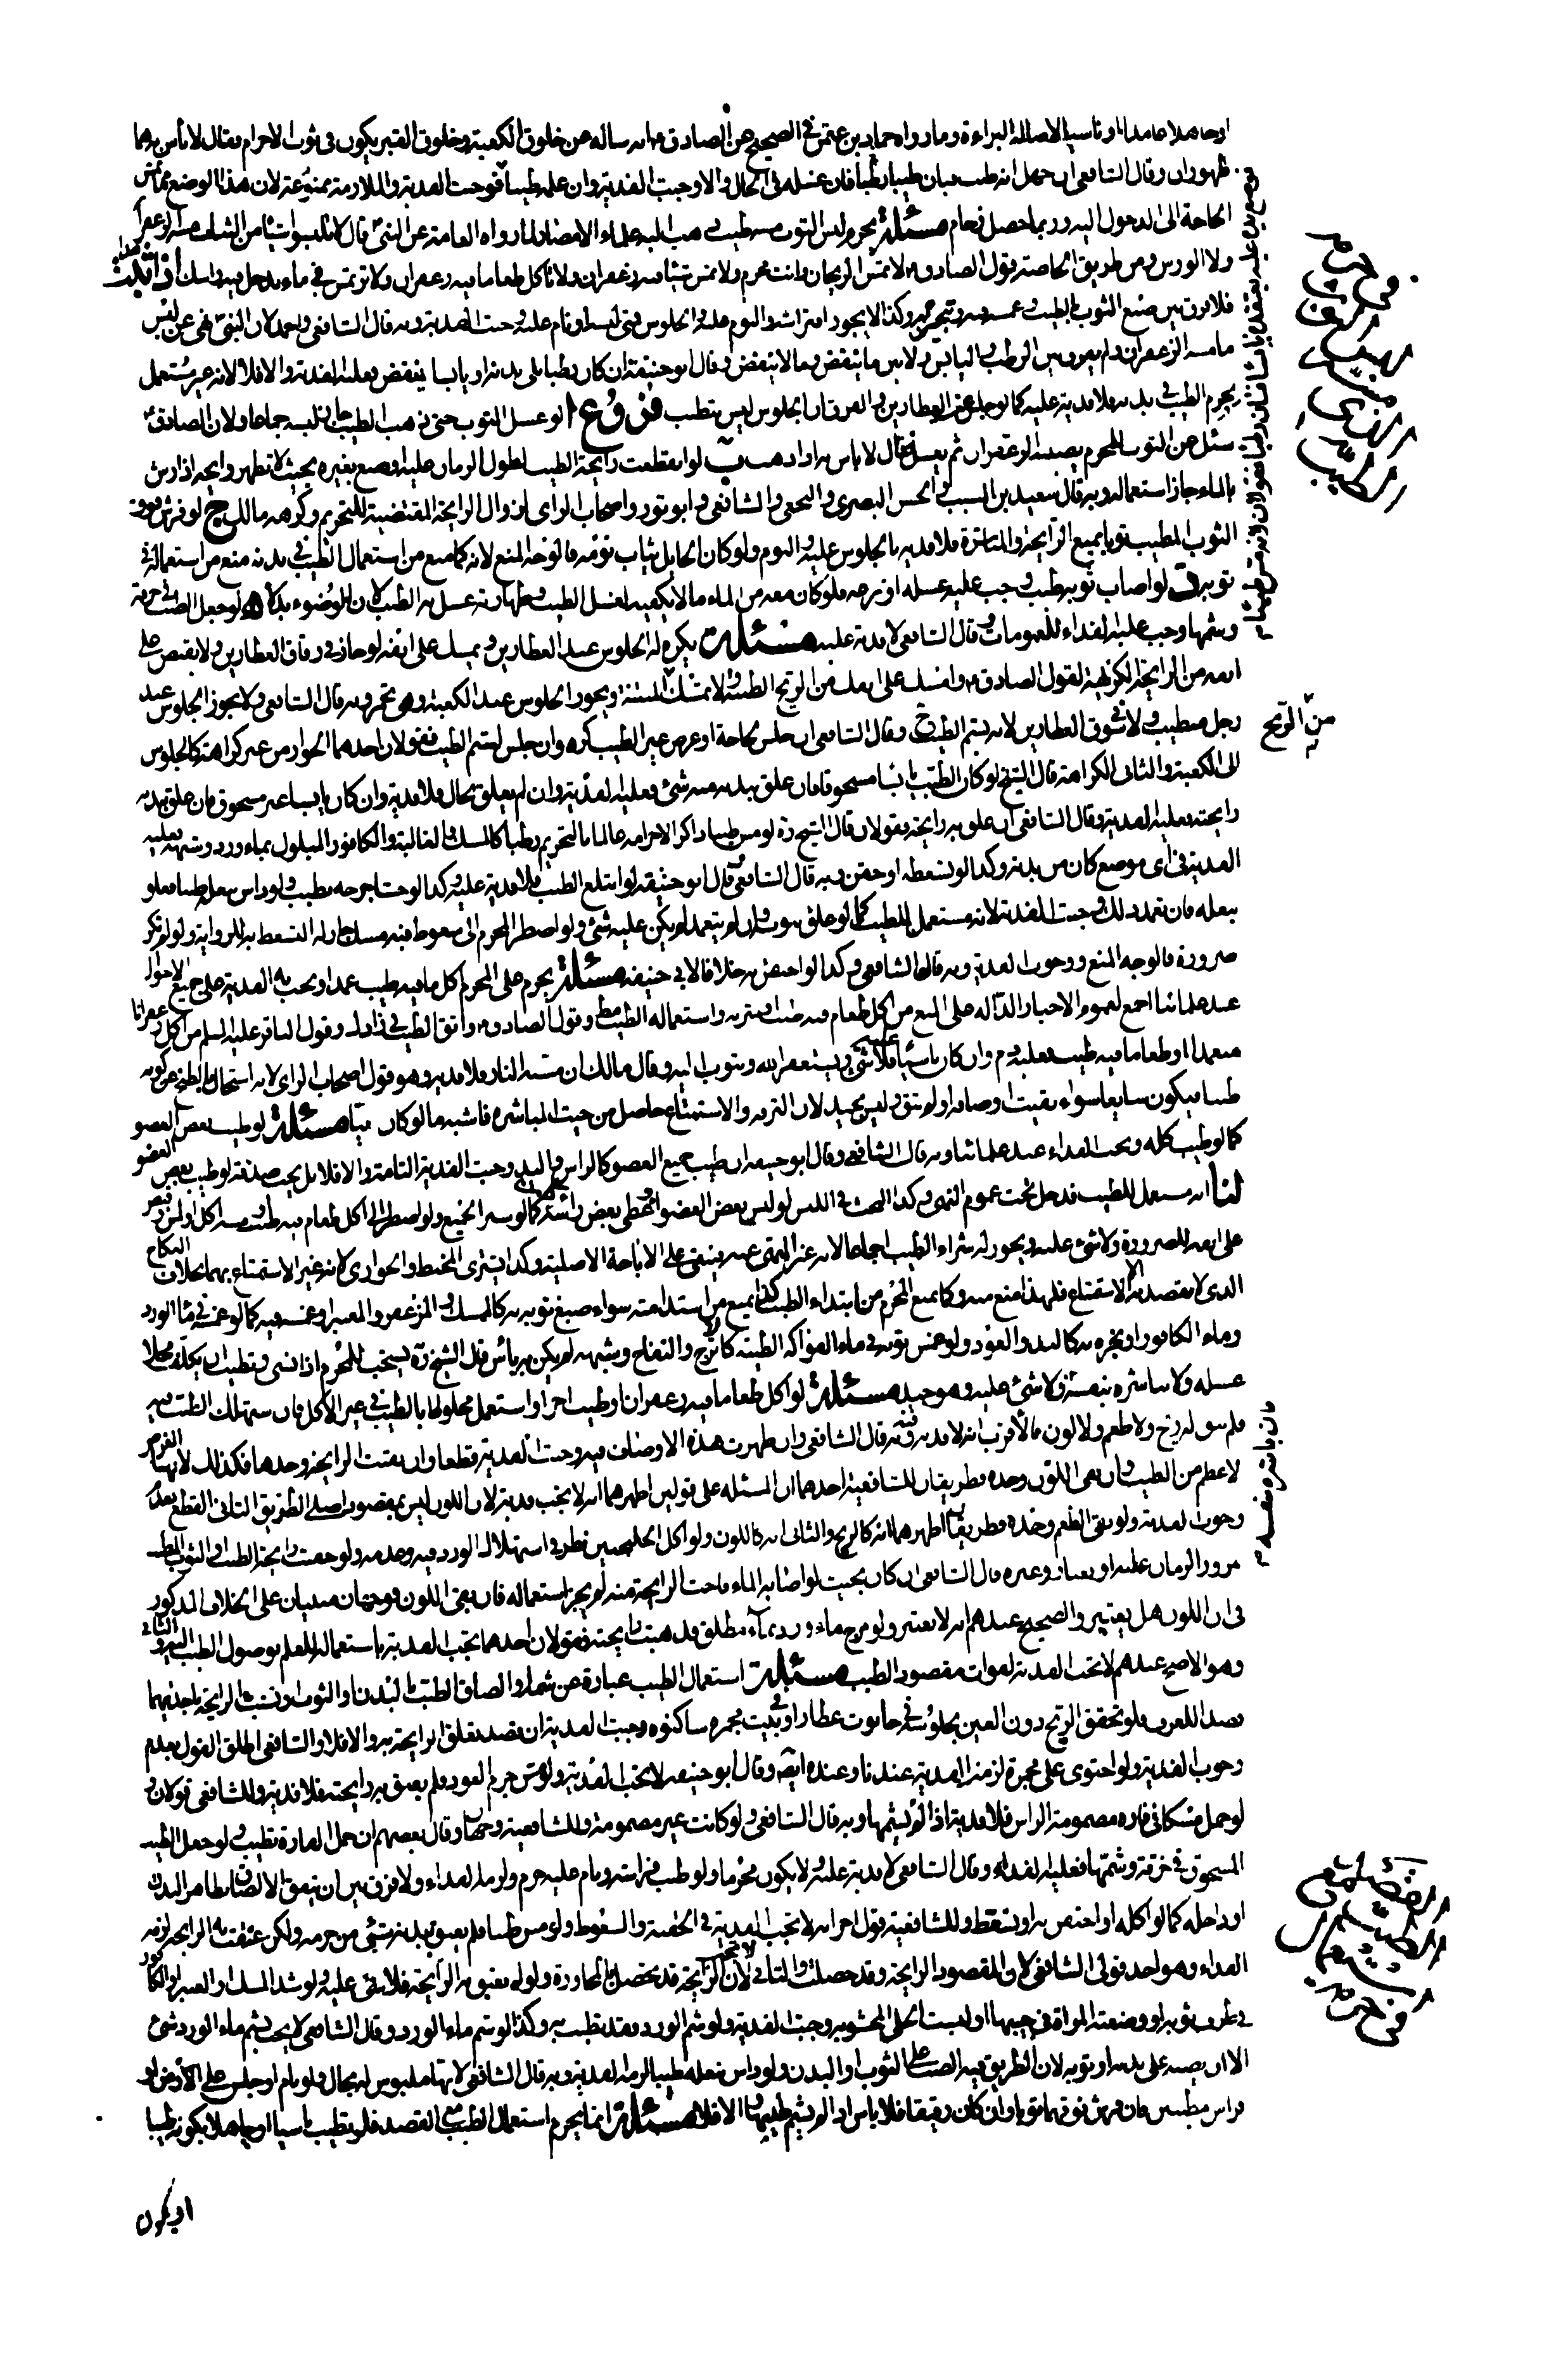 اوجاهلا عامدا او ناسيا لاصالة البراءة وما رواه حماد بن عثمن في الصحيح عن الصادق ء انه ساله عن خلوق الكعبة وخلوق القبر يكون في ثوب الاحرام فقال لا باس بهما
طهوران وقال الشافعي ان جهل انه طيب فبان طيبا رطبا فان غسله في الحال والا وجبت الفدية وان علمه طيبا فوجبت الفدية والملازمة ممنوعة لان هذا الوضع
الحاجة الى الدخول اليه وربما حصل زحام مسئلة يحرم لبس الثوب مسه طيب ذهب اليه علماء الامصار لما رواه العامة عن النبي قال لا تلبسوا شيئا من الثياب مسه الزعفران
ولا الورس ومن طريق الخاصة قول الصادق ء لا تمس الريحان وانت محرم ولا تمس شيئا فيه زعفران ولا تاكل طعاما فيه زعفران ولا ترتمس في ماء يدخل فيه راسك اذا ثبت
فلا فرق بين صبغ الثوب بالطيب وغمسه فيه وتبخيره وكذا لا يجوز افتراشه والنوم عليه والجلوس فمتى لبسه او نام عليه وجبت الفدية وبه قال الشافعي واحمد لان النبي نهى عن لبس
ما مسه الزعفران ولم يفرق بين الرطب واليابس ولا بين ما ينفض وما لا ينفض وقال ابو حنيفة ان كان رطبا يلي بدنه او يابسا ينفض فعليه الفدية والا فلا لانه غير مستعمل
بجرم الطيب في بدنه فلا فدية عليه كما لو جلس عند العطارين والفرق ان الجلوس ليس بتطيب فروع ا لو غسل الثوب حتى ذهب الطيب جاز له لبسه اجماعا ولان الصادق ء
سئل عن الثوب للمحرم يصيبه الزعفران ثم يغسل فقال لا باس به اذا ذهب ب لو انقطعت رايحة الطيب لطول الزمان عليه او صبغ بغيره بحيث لا تظهر رايحة اذا رش
بالماء جاز استعماله وبه قال سعيد بن المسيب والحسن البصري والنخعي والشافعي وابو ثور واصحاب الراي لزوال الرايحة المقتضية للتحريم وكرهه مالك ج لو فرش فوق
الثوب المطيب ثوبا يمنع الرايحة والمباشرة فلا فدية بالجلوس عليه والنوم ولو كان الحايل ثياب نومه فالوجه المنع لانه كما منع من استعمال الطيب في بدنه منع من استعماله في
ثوبه د لو اصاب ثوبه طيب وجب عليه غسله او نزعه فلو كان معه من الماء ما لا يكفيه لغسل الطيب وطهارته غسل به الطيب لان للوضوء بدلا ه لو جعل الطيب في خرقة
وشمها وجب عليه الفداء للعمومات وقال الشافعي لا فدية عليه مسئلة يكره له الجلوس عند العطارين ويمسك على انفه لو جاز في زقاق العطارين ولا يقبض على
انفه من الرايحة الكريهة لقول الصادق ء وامسك على انفك من الريح الطيبة ولا تمسك المنتنة ويجوز الجلوس عند الكعبة وهي تجمر وبه قال الشافعي ولا يجوز الجلوس عند
رجل متطيب ولا في سوق العطارين لانه يشم الطيب وقال الشافعي ان جلس لحاجة او غرض غير الطيب كره وان جلس لشم الطيب فقولان احدهما الجواز من غير كراهة كالجلوس
الى الكعبة والثاني الكراهة قال الشيخ لو كان الطيب يابسا مسحوقا فان علق ببدنه منه شئ فعليه الفدية وان لم يعلق بحال فلا فدية وان كان يابسا غير مسحوق فان علق ببدنه
رايحته فعليه الفدية وقال الشافعي ان علق به رايحة فقولان قال الشيخ ره لو مس طيبا ذاكرا لاحرامه عالما بالتحريم رطبا كالمسك والغالية والكافور المبلول بماء ورد وشبهه فعليه
الفدية في اى موضع كان من بدنه وكذا لو تسعط به او حقن به وبه قال الشافعي وقال ابو حنيفة لو ابتلع الطيب فلا فدية عليه وكذا لو حشا جرحه بطيب ولو داس بنعله طيبا فعلق
بنعله فان تعمد ذلك وجبت الفدية لانه مستعمل للطيب كما لو علق بثوبه وان لم يتعمد لم يكن عليه شئ ولو اضطر المحرم الى سعوط فيه مسك جاز له التسعط به للرواية ولو لم تكن
ضرورة فالوجه المنع ووجوب الفدية وبه قال الشافعي وكذا لو احتقن به خلافا لابي حنيفة مسئلة يحرم على المحرم اكل ما فيه طيب عمدا ويجب به الفدية على جميع الاحوال
عند علمائنا اجمع لعموم الاخبار الدالة على المنع من اكل طعام فيه طيب او شربه واستعماله الطيب مط وقول الصادق ء واتق الطيب في زادك وقول الباقر عليه السلم من اكل زعفرانا
متعمدا او طعاما فيه طيب فعليه دم وان كان ناسيا فلا شئ عليه ويستغفر الله ويتوب اليه وقال مالك ان مسته النار فلا فدية وهو قول اصحاب الراي لانه استحال بالطبخ عن كونه
طيبا فيكون سايغا سواء بقيت اوصافه او لم تبق وليس بجيد لان الترفه والاستمتاع حاصل من حيث المباشرة فاشبه ما لو كان نيا مسئلة لو طيب بعض العضو
كما لو طيب كله ويجب الفداء عند علمائنا وبه قال الشافعي وقال ابو حنيفة ان طيب جميع العضو كالراس واليد وجبت الفدية التامة والا فلا بل يجب صدقة لو طيب بعض العضو
لنا انه مستعمل للطيب فدخل تحت عموم النهي وكذا البحث في اللبس لو لبس بعض العضو او غطى بعض راسه كما لو ستر الجميع ولو اضطر الى اكل طعام فيه طيب او مسه اكل او لمس وقبض
على انفه للضرورة ولا شئ عليه ويجوز له شراء الطيب اجماعا لانه غير المنهي عنه فيبقى على الاباحة الاصلية وكذا يشتري المخيط والجواري لانه غير الاستمتاع بهما بخلاف النكاح
الذي لا يقصد به الا الاستمتاع فلهذا منع منه وكما يمنع المحرم من ابتداء الطيب كذا يمنع من استدامته سواء صبغ ثوبه به كالمسك والزعفران والعنبر او غمسه فيه كما لو غمسه في ماء الورد
وماء الكافور او بخره به كالند والعود ولو غمس ثوبه في ماء الفواكه الطيبة كالاترج والتفاح وشبهه لم يكن به باس قال الشيخ ره يستحب للمحرم اذا نسي وتطيب ان يكلف محلا
غسله ولا يباشره بنفسه ولا شئ عليه وهو جيد مسئلة لو اكل طعاما فيه زعفران او طيب اخر او استعمل مخلوطا بالطيب في غير الاكل فان استهلك الطيب فيه
فلم يبق له ريح ولا طعم ولا لون فالاقرب انه لا فدية فيه وبه قال الشافعي وان ظهرت هذه الاوصاف فيه وجبت الفدية قطعا وان بقيت الرايحة وحدها فكذلك لانها الغرض
الاعظم من الطيب وان بقي اللون وحده فطريقان للشافعية احدهما ان المسئلة على قولين اظهرهما انه لا يجب فدية لان اللون ليس بمقصود اصلي الطريق الثاني القطع بعدم
وجوب الفدية ولو بقي الطعم وحده فطريقان اظهرهما انه كالريح والثاني انه كاللون ولو اكل الخلنجبين نظر في استهلاك الورد فيه وعدمه ولو خفيت رايحة الطيب او الثوب المطيب
مرور الزمان عليه او بغبار وغيره قال الشافعي ان كان بحيث لو اصابه الماء فاحت الرايحة منه لم يجز استعماله فان بقي اللون فوجهان مبنيان على الخلاف المذكور
في ان اللون هل يعتبر والصحيح عندهم انه لا يعتبر ولو مزج ماء ورد بماء مطلق فذهبت رايحته فقولان احدهما يجب الفدية باستعماله للعلم بوصول الطيب اليه والثاني
وهو الاصح عندهم لا تجب الفدية لفوات مقصود الطيب مسئلة استعمال الطيب عبارة عن شمه او الصاق الطيب بالبدن والثوب او تشبث الرايحة باحدهما
قصدا للعرف فلو تحقق الريح دون العين بجلوسه في حانوت عطار او في بيت يجمره ساكنوه وجبت الفدية ان قصد تعلق الرايحة به والا فلا والشافعي اطلق القول بعدم
وجوب الفدية ولو احتوى على مجمرة لزمته الفدية عندنا وعنده ايضا وقال ابو حنيفة لا تجب الفدية ولو مس جرم العود فلم يعبق به رايحته فلا فدية وللشافعي قولان و
لو حمل مسكا في فارة مضمومة الراس فلا فدية اذا لم يشمها وبه قال الشافعي ولو كانت غير مضمومة وللشافعية وجهان وقال بعضهم ان حمل الفارة تطيب ولو جعل الطيب
المسحوق في خرقة وشمها فعليه الفداء وقال الشافعي لا فدية عليه ولا يكون محرما ولو طيب فراشه ونام عليه حرم ولزمه الفداء ولا فرق بين ان يتفق الالصاق بظاهر البدن
او داخله كما لو اكله او احتقن به او تسقط وللشافعية قول اخر انه لا تجب الفدية في الحقنة والسعوط ولو مس طيبا فلم يعبق ببدنه شئ من جرمه ولكن عبقت به الرايحة لزمه
الفداء وهو احد قولي الشافعي لان المقصود الرايحة وقد حصلت والثاني لا تجب لان الرايحة قد تحصل بالمجاورة ولو لم تعبق به الرايحة فلا شئ عليه ولو شد المسك او العنبر او الكافور
في طرف ثوبه او وضعته المراة في جيبها او لبست الحلي المحشو به وجبت الفدية ولو شم الورد فقد تطيب به وكذا لو شم ماء الورد وقال الشافعي لا يجب بشم ماء الورد شئ
الا ان يصبه على بدنه او ثوبه لان الطريق فيه الصب على الثوب او البدن ولو داس بنعله طيبا لزمه الفدية وبه قال الشافعي لانها ملبوس له بحال ولو نام او جلس على الارض او
فراش مطيبين فان فرش فوقهما ثوبا وان كان رقيقا فلا باس اذا لم يشم طيبهما والا فلا مسئلة انما يحرم استعمال الطيب مع القصد فلو تطيب ناسيا او جاهلا بكونه طيبا
من الريح
او يكون